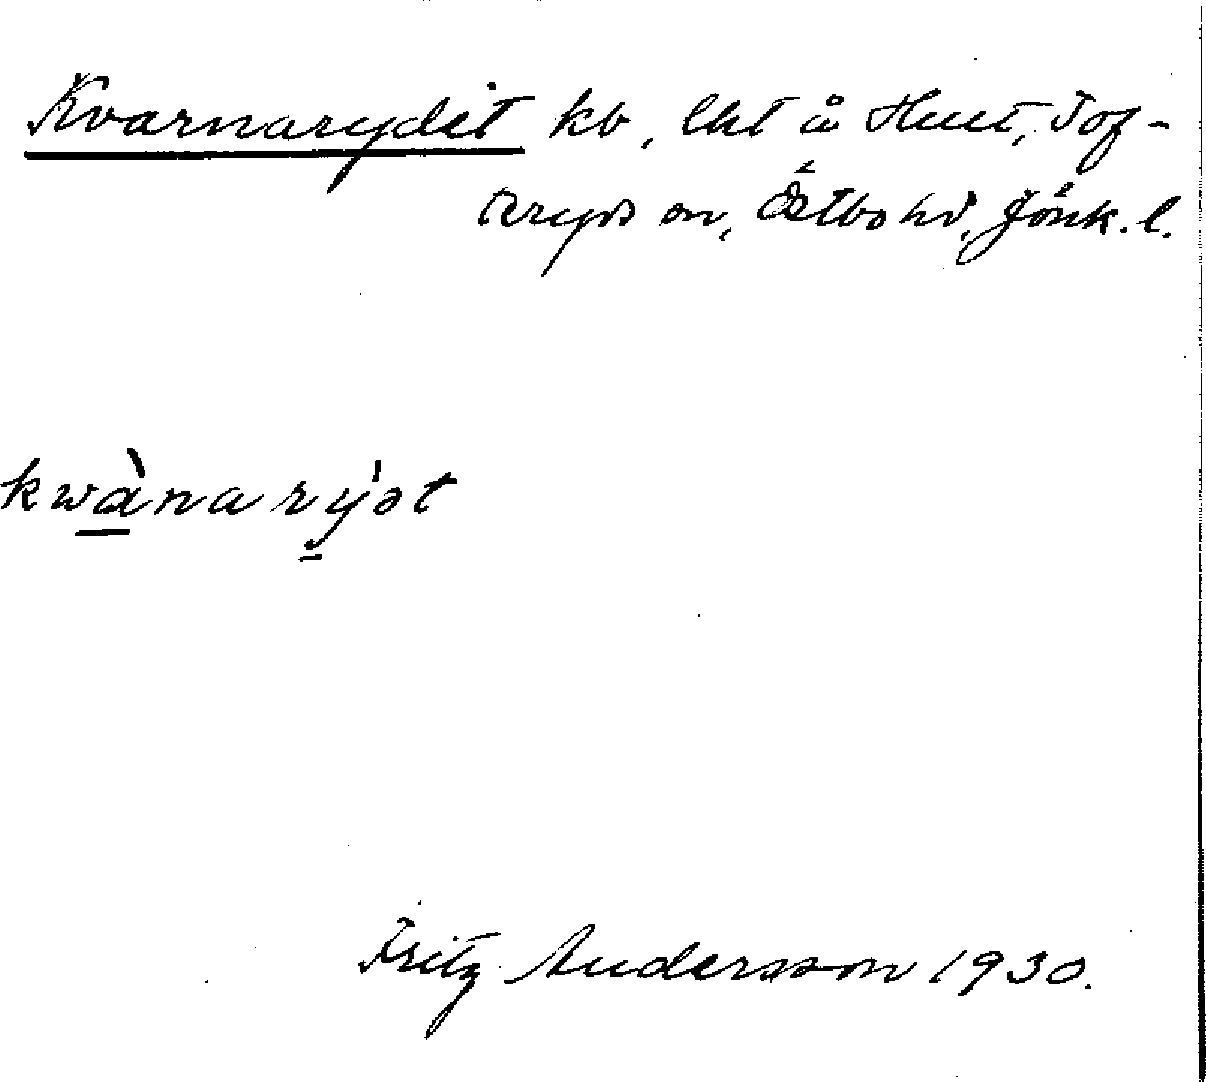 Kvarnarydet kb, lht å Hult, Tof-
teryds sn, Östbo hd, Jönk. l.
kwànarýət
Fritz Andersson 1930.